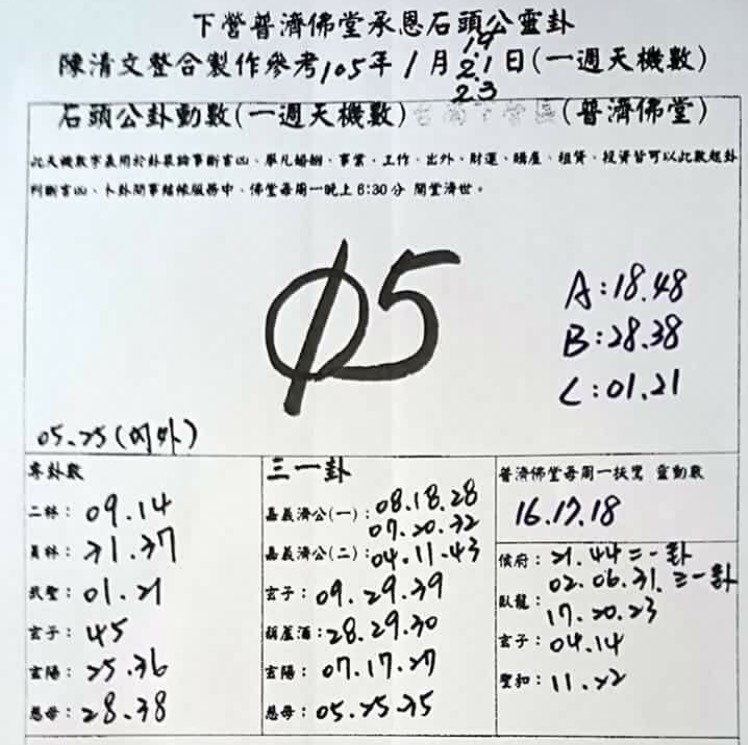 下營普濟佛堂承恩石頭公靈卦
陳清文整合製作參考105年1月19 21 23日(一週天機數)
石頭公卦動數(一週天機數)台南下營區(普濟佛堂)
此天機數字表用於卦象論事斷吉凶、舉凡婚姻、事業、工作、出外、財運、購屋、租賃、投資皆可以此數起卦
判斷吉凶、卜卦問事結緣服務中、佛堂每周一晚上6:30分 開堂濟世。
05
A:18.48
B:28.38
C:01.21
05.25(內外)
專卦數
二林:09.14
員林:21.37
武聖:01.21
玄子:45
玄陽:25.36
慈母:28.38
三一卦
嘉義濟公(一):08.18.28
07.20.32
嘉義濟公(二):04.11.43
玄子:09.29.39
葫蘆酒:28.29.30
玄陽:07.17.27
慈母:05.25.35
普濟佛堂每周一扶鸞 靈動數
16.17.18
侯府:21.44二一卦
02.06.31.三一卦
臥龍:17.20.23
玄子:04.14
聖和:11.22